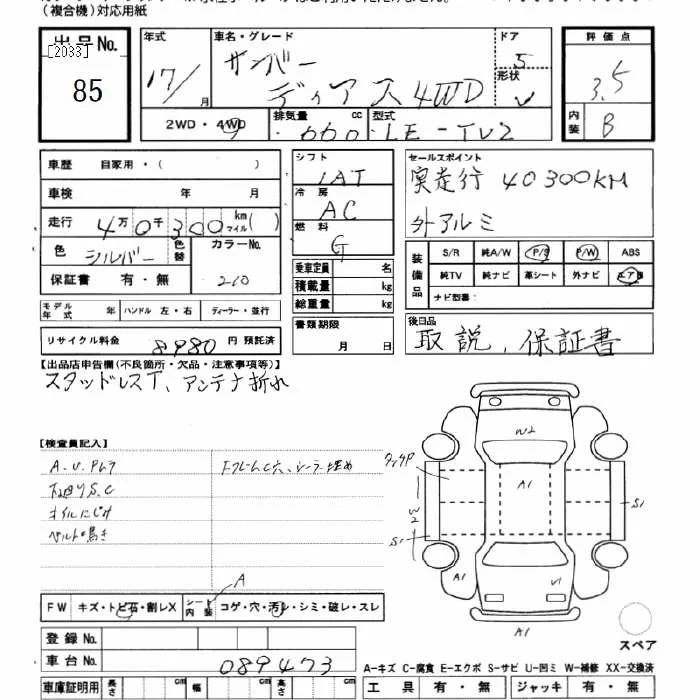 (複合機)対応用紙
出品No.
[2033]
85
年式
17/
月
車名・グレード
サンバー
ディアス4WD
ドア
5
形状
V
評価点
3.5
内装
B
2WD・4WD
排気量
cc
660
型式
LE-TV2
車歴 自家用・( )
車検 年 月
走行 4万0千300 km マイル( )
色 シルバー 色替
カラーNo.
210
保証書 有・無
モデル年式 年 ハンドル 左・右 ディーラー・並行
リサイクル料金 8980 円 預託済
シフト
IAT
冷房
AC
燃料
G
乗車定員 名
積載量 kg
総重量 kg
書類期限
月 日
セールスポイント
実走行 40300KM
外アルミ
装備品
S/R 純A/W P/S P/W ABS
純TV 純ナビ 革シート 外ナビ エアB
ナビ型番:
後日品
取説、保証書
【出品店申告欄(不良箇所・欠品・注意事項等)】
スタッドレスT、アンテナ折れ
【検査員記入】
A.U.Pムラ
下廻りS.C
オイルにじみ
ベルト鳴き
FフレームC穴、シーラー埋め
W2
A1
S1
S1
A1
U1
A1
A
FW キズ・トビ石・割レX シート内装 コゲ・穴・汚レ・シミ・破レ・スレ
登録No.
車台No.
089473
スペア
A-キズ C-腐食 E-エクボ S-サビ U-凹ミ W-補修 XX-交換済
車庫証明用 長さ cm 幅 cm 高さ cm
工具 有・無 ジャッキ 有・無